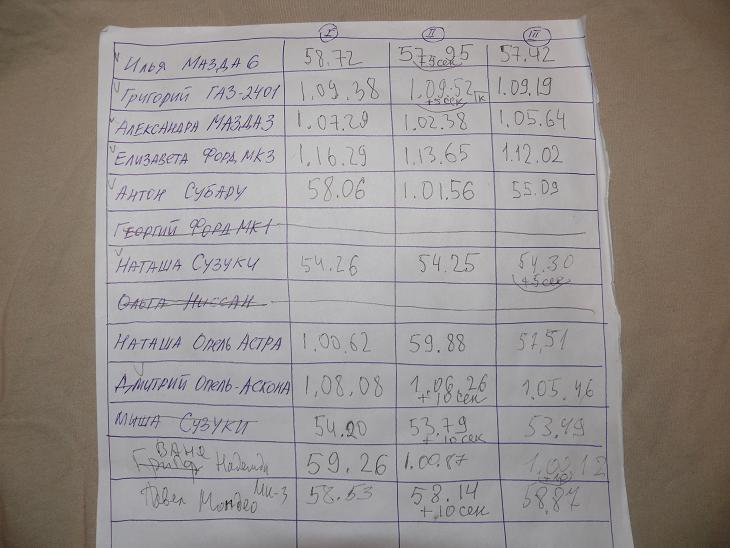 I II III
Илья Мазда 6 58.72 57.95 57.42
+5сек
Григорий ГАЗ-2401 1.09.38 1.09.52 1.09.19
+5сек
Александра Мазда3 1.07.29 1.02.38 1.05.64
Елизавета Форд МК3 1.16.29 1.13.65 1.12.02
Антон Субару 58.06 1.01.56 55.09
Георгий Форд МК1
Наташа Сузуки 54.26 54.25 54.30
+5сек
Ольга Ниссан
Наташа Опель Астра 1.00.62 59.88 57.51
Дмитрий Опель-Аскона 1.08.08 1.06.26 1.05.46
+10сек
Миша Сузуки 54.20 53.79 53.49
+10сек
Надежда 59.26 1.00.87
Павел Мондео МК-3 58.53 58.14 58.87
+10сек